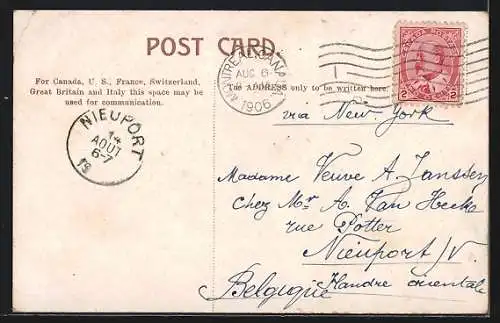 POST CARD.
For Canada, U. S., France, Switzerland,
Great Britain and Italy this space may be
used for communication.
The ADDRESS only to be written here.
MONTREAL, CANADA
AUG 6
1906
CANADA POSTAGE
2 2
NIEUPORT
14
AOUT
6-7
via New York
Madame Veuve A. Janssen
Chez Mr A. Van Hecke
rue Potter
Nieuport/V
Flandre orientale
Belgique